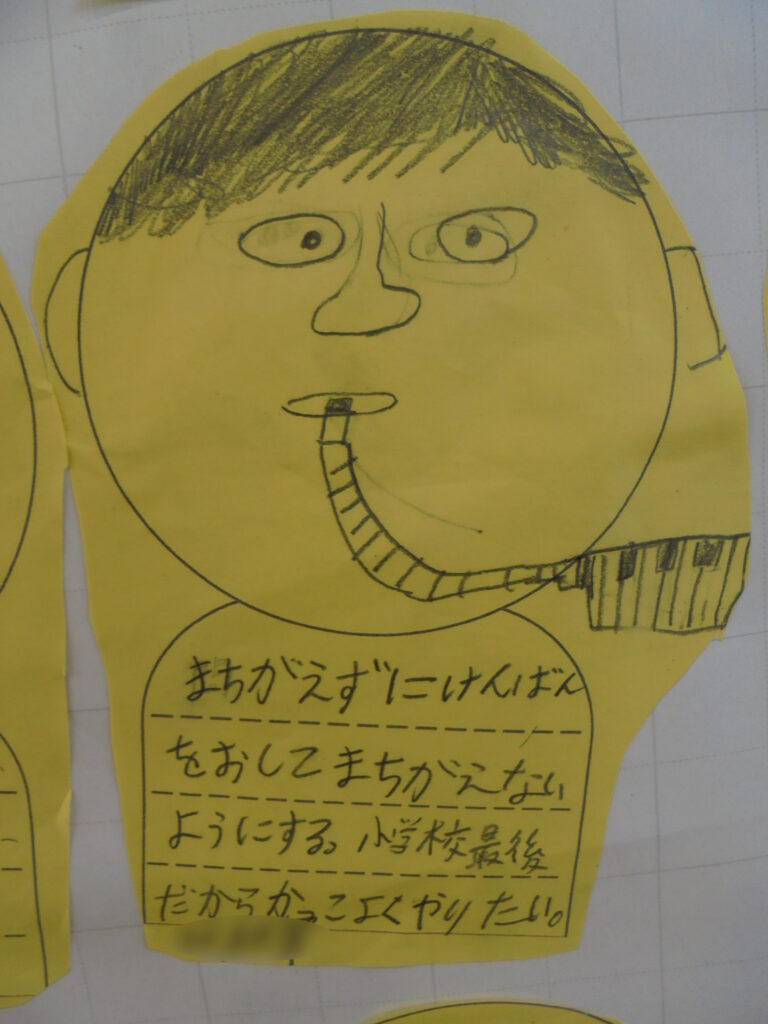 まちがえずにけんばん
をおしてまちがえない
ようにする。小学校最後
だからかっこよくやりたい。